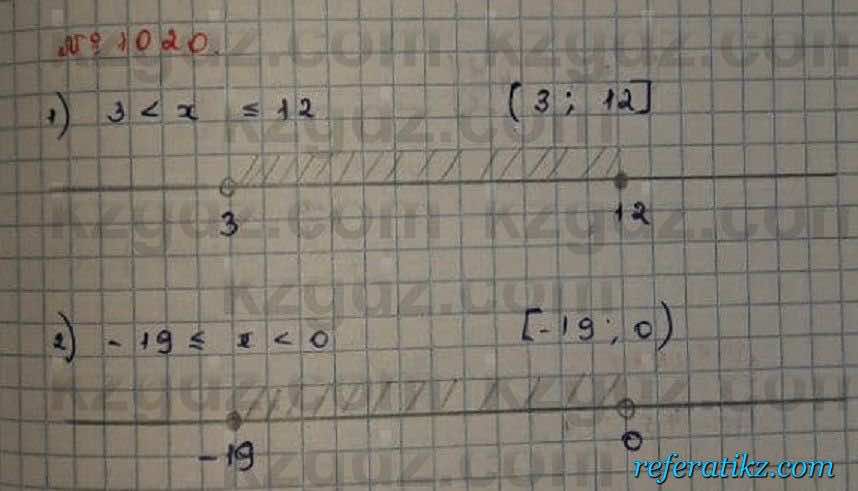 № 1020.
kzgdz.com kzgdz.com
1) 3 < x ≤ 12 (3 ; 12]
kzgdz.com
3 12
kzgdz.com kzgdz.com
kzgdz.com
2) - 19 ≤ x < 0 [-19 ; 0)
kzgdz.com kzgdz.com
-19 0
kzgdz.com
referatikz.com